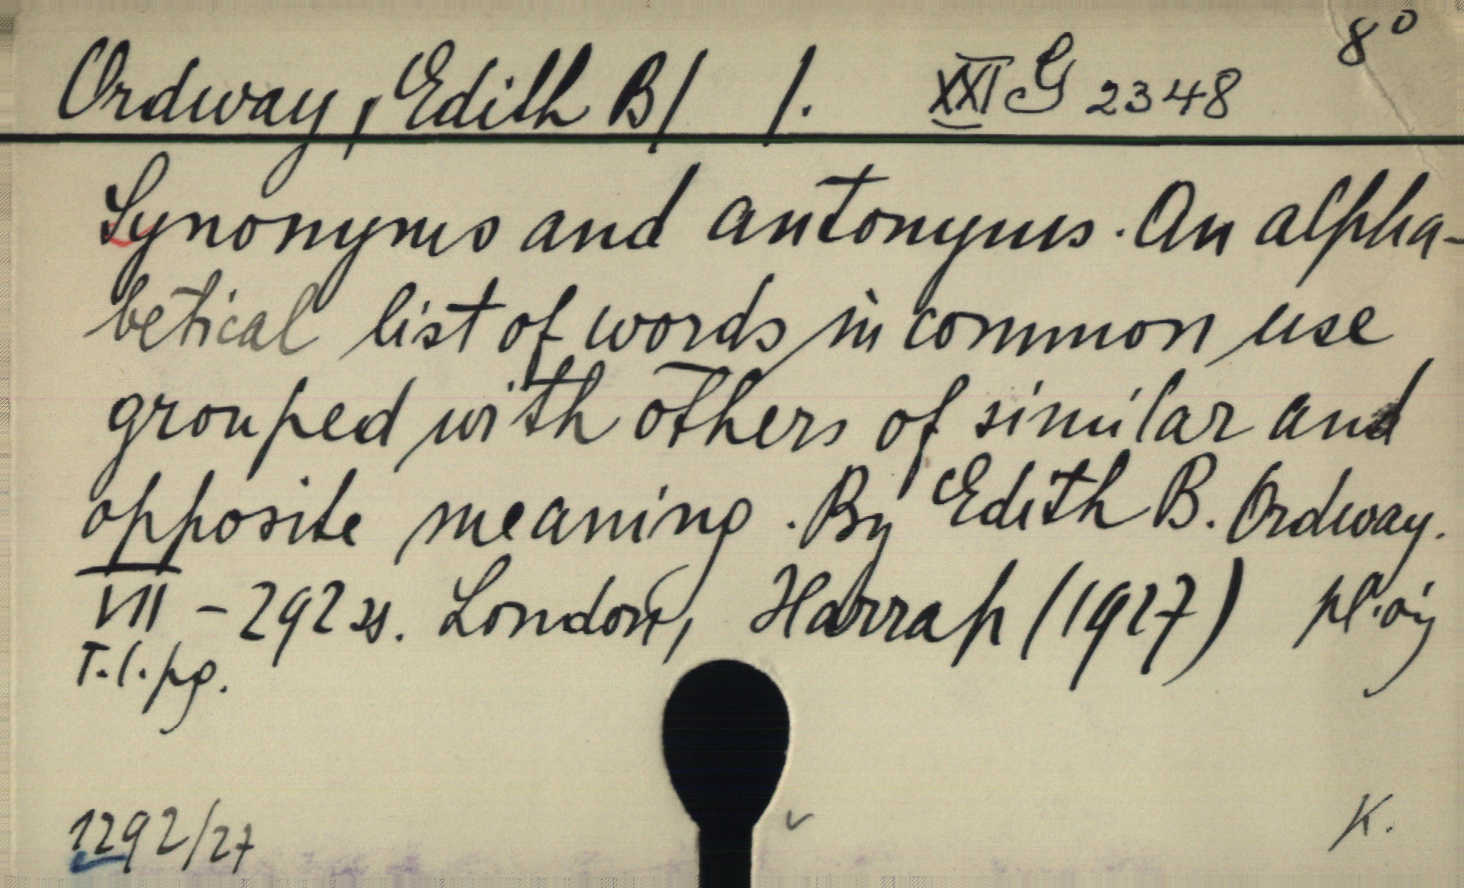 8°
Ordway, Edith B/ /. XXI G 2348
Synonyms and antonyms. An alpha-
betical list of words in common use
grouped with others of similar and
opposite meaning. By Edith B. Ordway.
VII - 292 s. London, Harrap (1927)
T. l. pg.
1292/27
K.